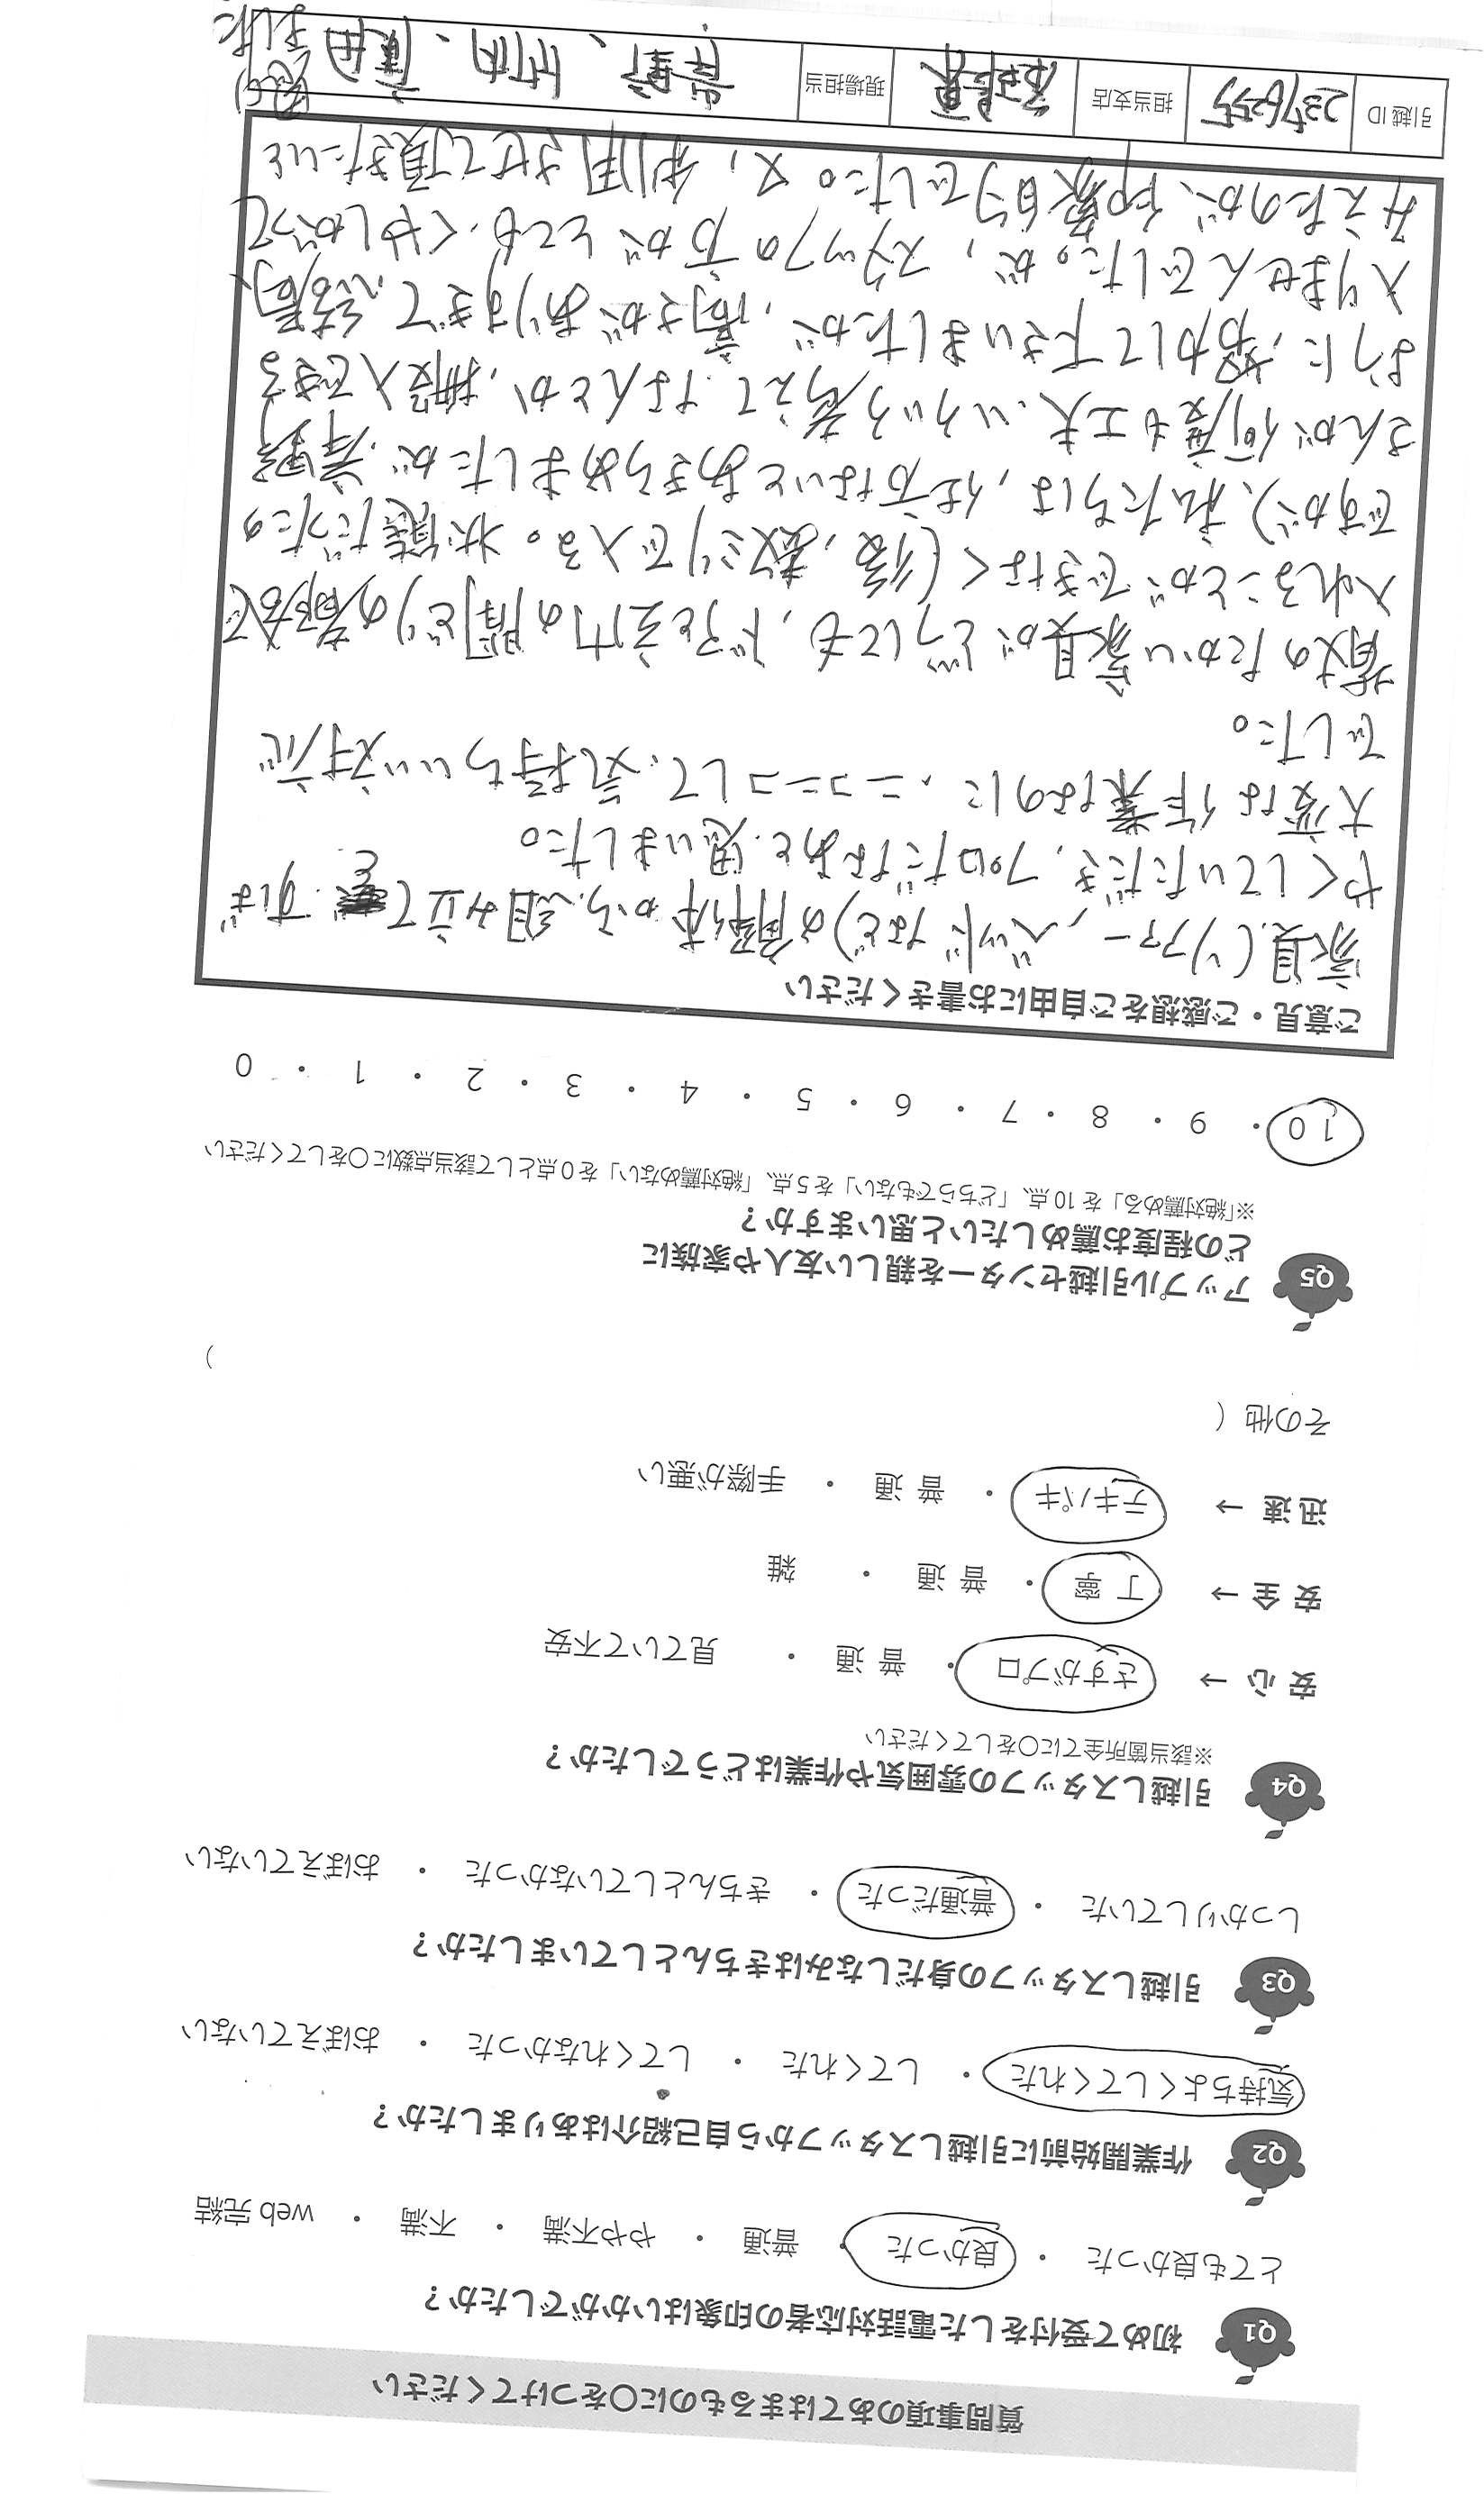 質問事項のあてはまるものに○をつけてください
Q1 初めて受付をした電話対応者の印象はいかがでしたか？
とても良かった ・ 良かった ・ 普通 ・ やや不満 ・ 不満 ・ web 完結
Q2 作業開始前に引越しスタッフから自己紹介はありましたか？
気持ちよくしてくれた ・ してくれた ・ してくれなかった ・ おぼえていない
Q3 引越しスタッフの身だしなみはきちんとしていましたか？
しっかりしていた ・ 普通だった ・ きちんとしていなかった ・ おぼえていない
Q4 引越しスタッフの雰囲気や作業はどうでしたか？
※該当箇所全てに○をしてください
安心 → さすがプロ ・ 普通 ・ 見ていて不安
安全 → 丁寧 ・ 普通 ・ 雑
迅速 → テキパキ ・ 普通 ・ 手際が悪い
その他 (
)
Q5 アップル引越センターを親しい友人や家族に
どの程度お薦めしたいと思いますか？
※「絶対薦める」を 10 点、「どちらでもない」を 5 点、「絶対薦めない」を 0 点として該当点数に○をしてください
10 ・ 9 ・ 8 ・ 7 ・ 6 ・ 5 ・ 4 ・ 3 ・ 2 ・ 1 ・ 0
ご意見・ご感想をご自由にお書きください
家具(ソファー、ベッドなど)の解体から、組み立てを すば
やくしていただき、プロだなあと、思いました。
大変な作業なのに、ニコニコして、気持ちいい対応
でした。
背丈のたかい家具がどうしても、ドアと玄関の間どりの都合で
入れることができなく(後、数ミリで入る。状態だったの
ですが)、私たちは、仕方ないとあきらめましたが、岸野
さんが何度も工夫、いろいろ考えて なんとか、搬入できる
ように、努力して下さいましたが、高さがありすぎて、結局、
入りませんでした。が、スタッフの方が とても、くやしがって
みえたのが、印象的でした。又、利用させて頂きたいと
思い
ました
引越 ID 担当支店 現場担当 岸野、竹内、